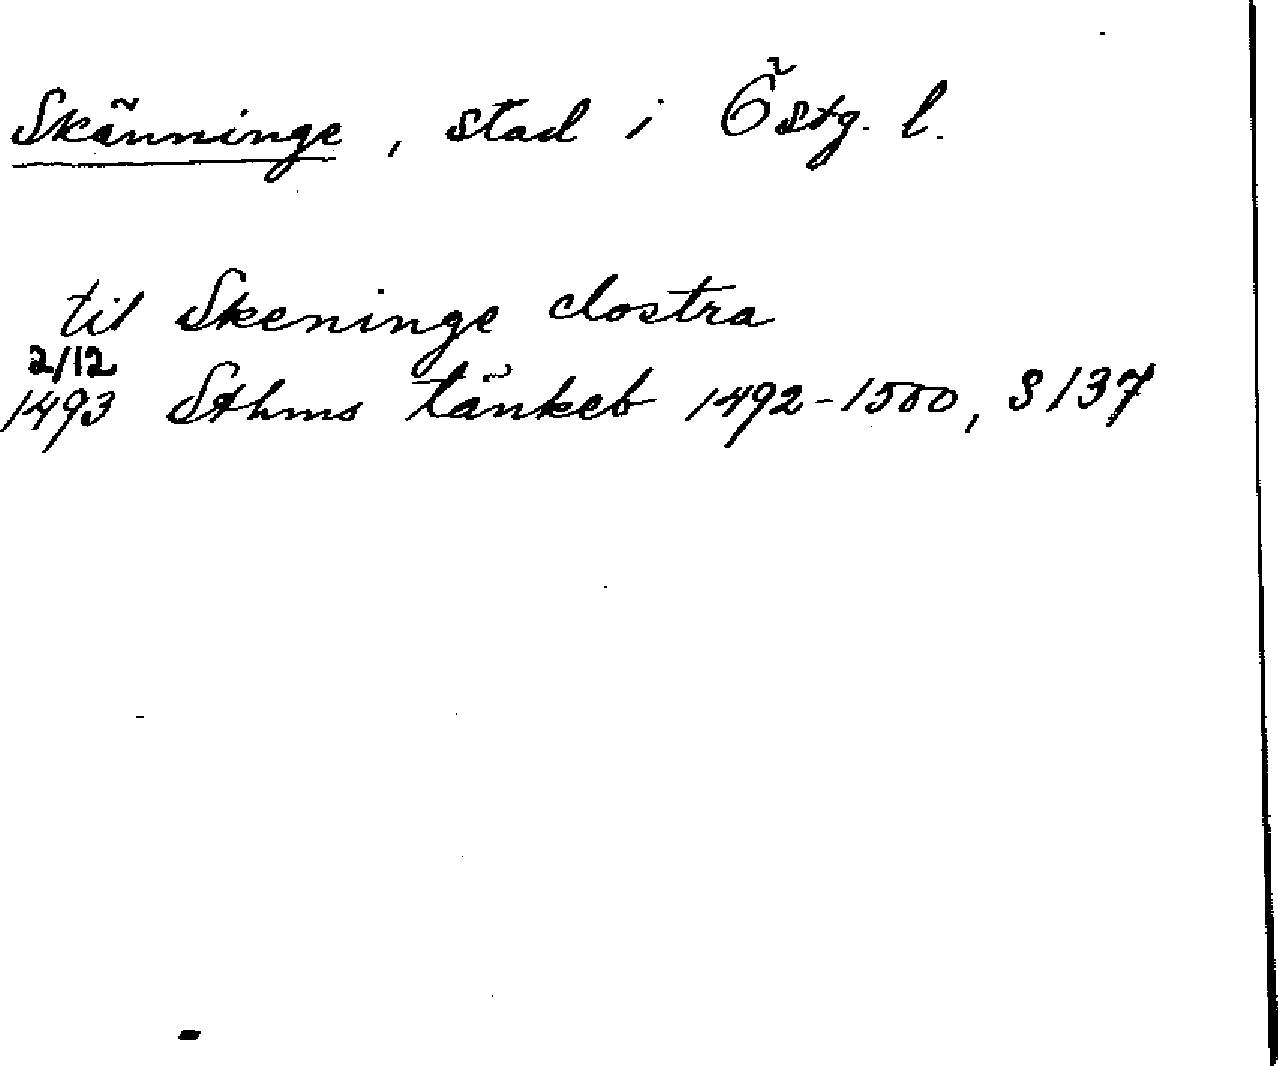 Skänninge, stad i Östg. l.
til Skeninge clostra
2/12
1493 Sthms tänkeb 1492-1500, S 137